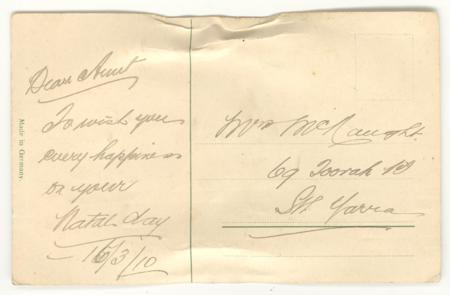 Dear Aunt
To wish you
every happiness
on your
Natal day
16/3/10
Made in Germany.
Mrs McNaught.
69 Toorak Rd
Sth Yarra